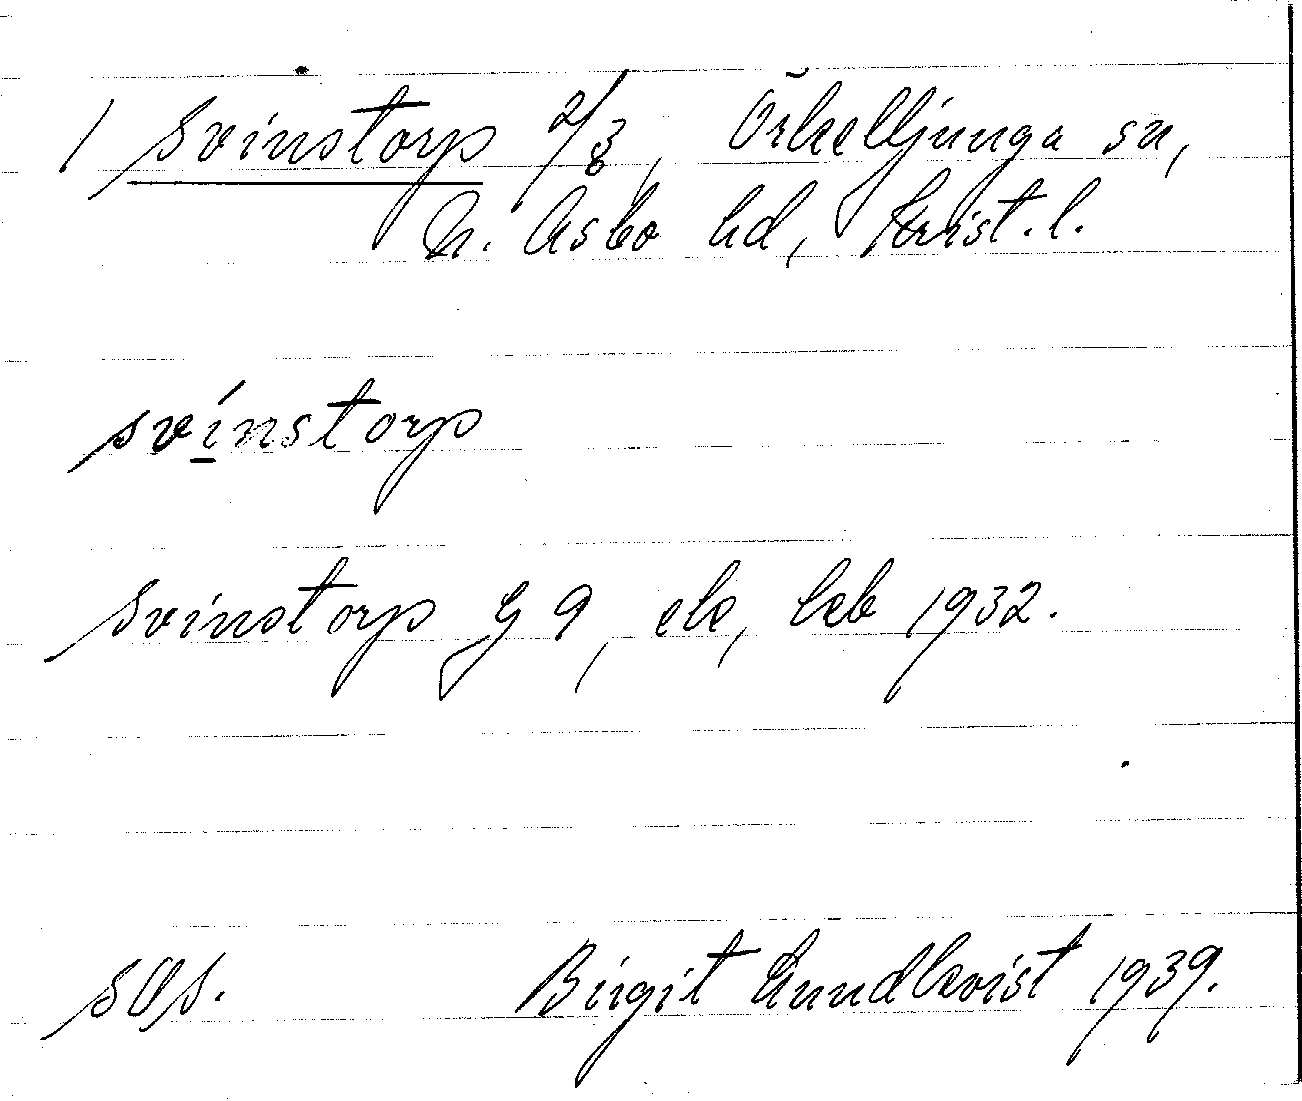 1 Svinstorp 2/8, Örkelljunga sn,
N. Åsbo hd, Krist. l.
svinstorp
Svinstorp G 9, ek, keb 1932.
SOS. Birgit Lundkvist 1939.